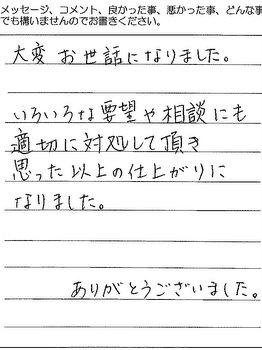 メッセージ、コメント、良かった事、悪かった事、どんな事
でも構いませんのでお書きください。
大変お世話になりました。
いろいろな要望や相談にも
適切に対処して頂き
思った以上の仕上がりに
なりました。
ありがとうございました。